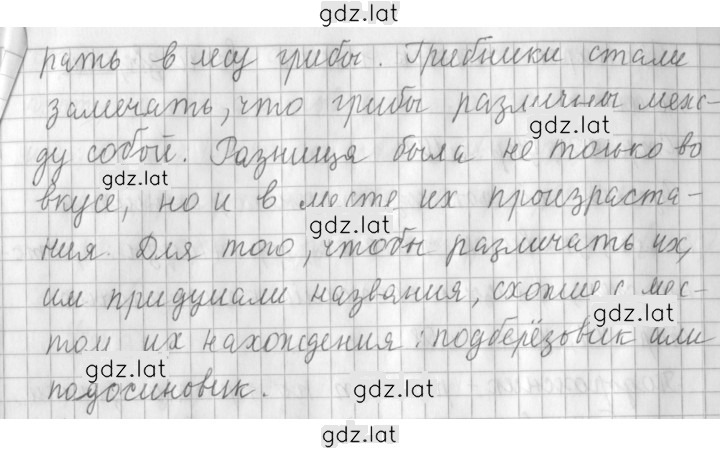 gdz.lat
рать в лесу грибы. Грибники стали
замечать, что грибы различны меж-
gdz.lat
ду собой. Разница была не только во
gdz.lat
вкусе, но и в месте их произраста-
gdz.lat
ния. Для того, чтобы различать их,
им придумали названия, схожие с мес-
gdz.lat
том их нахождения: подберёзовик или
gdz.lat
подосиновик.
gdz.lat
gdz.lat